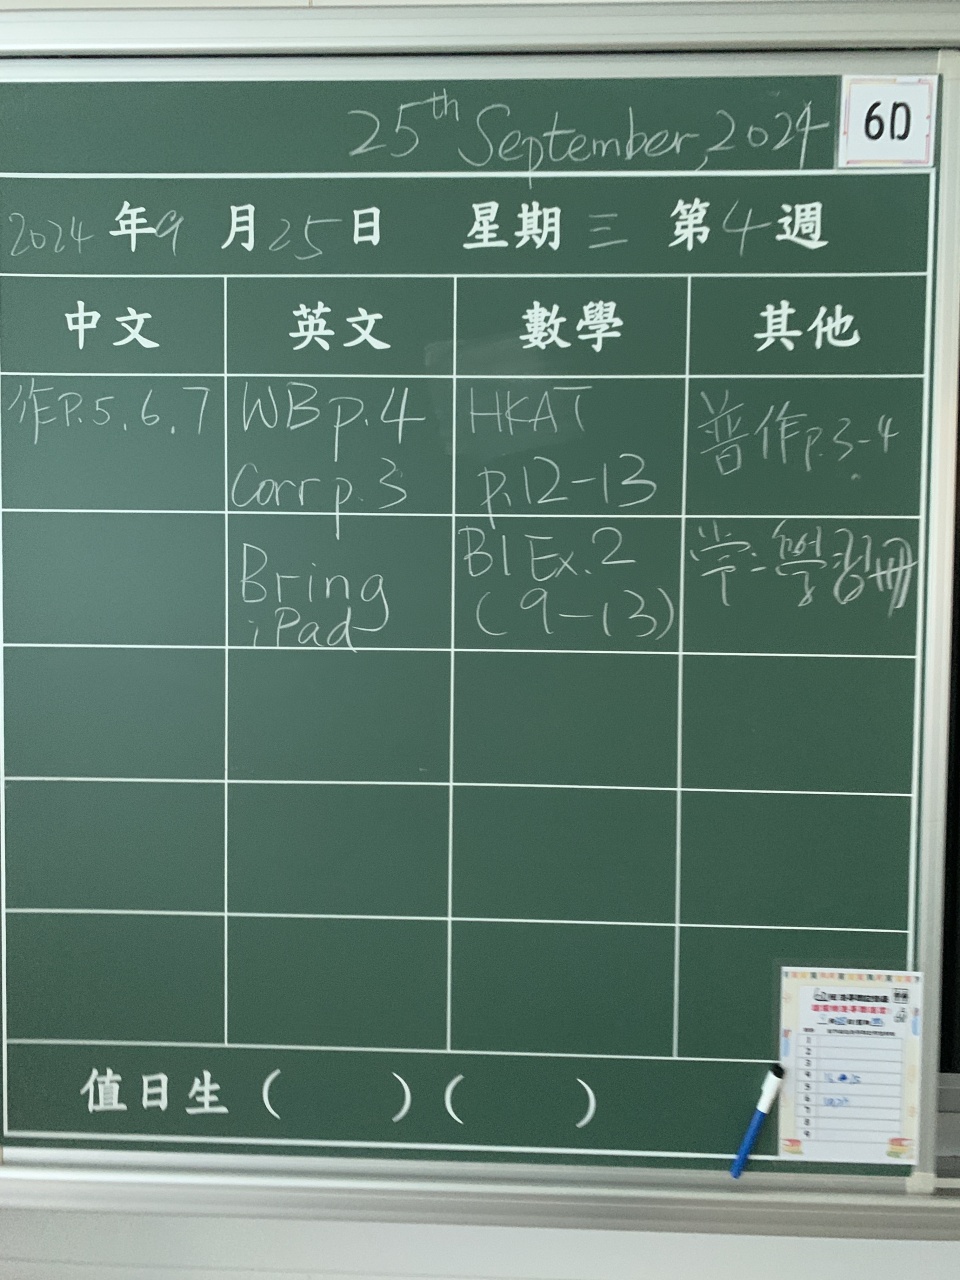 25th September, 2024
6D
2024年9月25日 星期三 第4週
中文 英文 數學 其他
作P.5.6.7
WB p.4
Corr p.3
HKAT
p.12-13
普作p.3-4
Bring
iPad
B1 Ex.2
(9-13)
学:學習冊
值日生( )( )
1
2
3
4
5
6
7
8
9